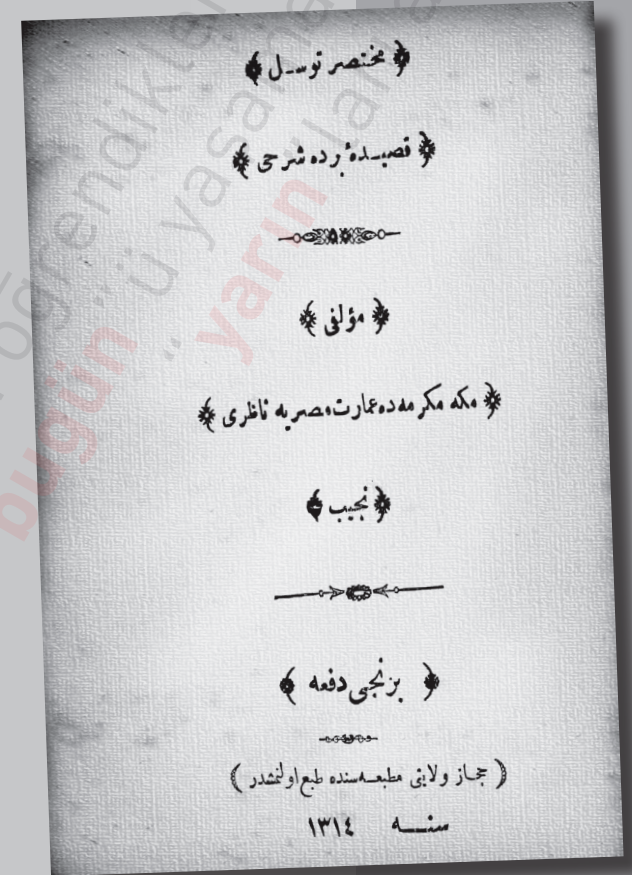 مختصر توسل
قصیدۀ برده شرحی
مؤلفی
مکه مکرمه ده عمارت مصریه ناظری
نجیب
برنجی دفعه
( حجاز ولایتی مطبعه سنده طبع اولنمشدر )
سنه ١٣١٤
öğrendikler
ü yaşam
bugün
yarın